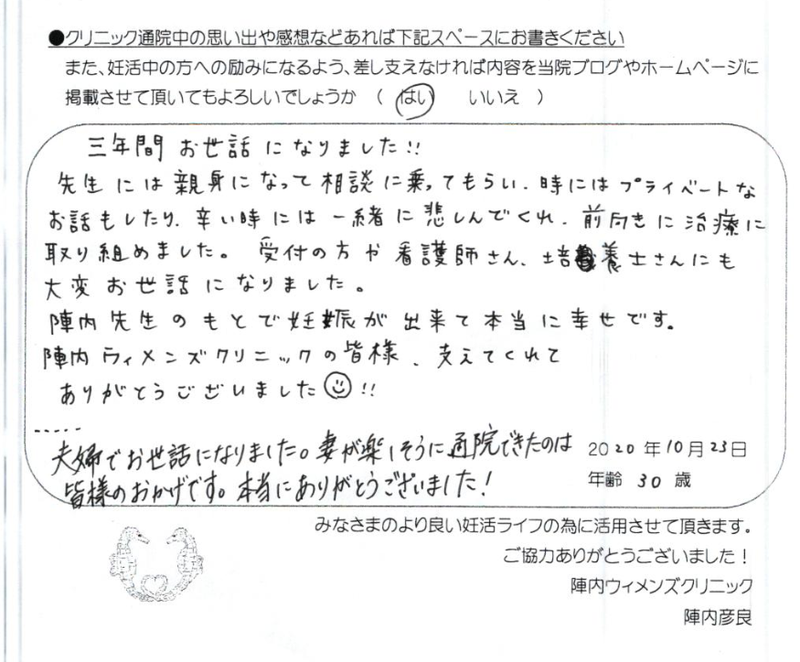 ●クリニック通院中の思い出や感想などあれば下記スペースにお書きください
また、妊活中の方への励みになるよう、差し支えなければ内容を当院ブログやホームページに
掲載させて頂いてもよろしいでしょうか （ はい いいえ ）
三年間 お世話になりました!!
先生には親身になって相談に乗ってもらい、時にはプライベートな
お話もしたり、辛い時には一緒に悲しんでくれ、前向きに治療に
取り組めました。 受付の方や看護師さん、培養士さんにも
大変お世話になりました。
陣内先生のもとで妊娠が出来て本当に幸せです。
陣内ウィメンズクリニックの皆様、支えてくれて
ありがとうございました☺!!
夫婦でお世話になりました。妻が楽しそうに通院できたのは
皆様のおかげです。本当にありがとうございました!
2020年10月23日
年齢 30 歳
みなさまのより良い妊活ライフの為に活用させて頂きます。
ご協力ありがとうございました！
陣内ウィメンズクリニック
陣内彦良